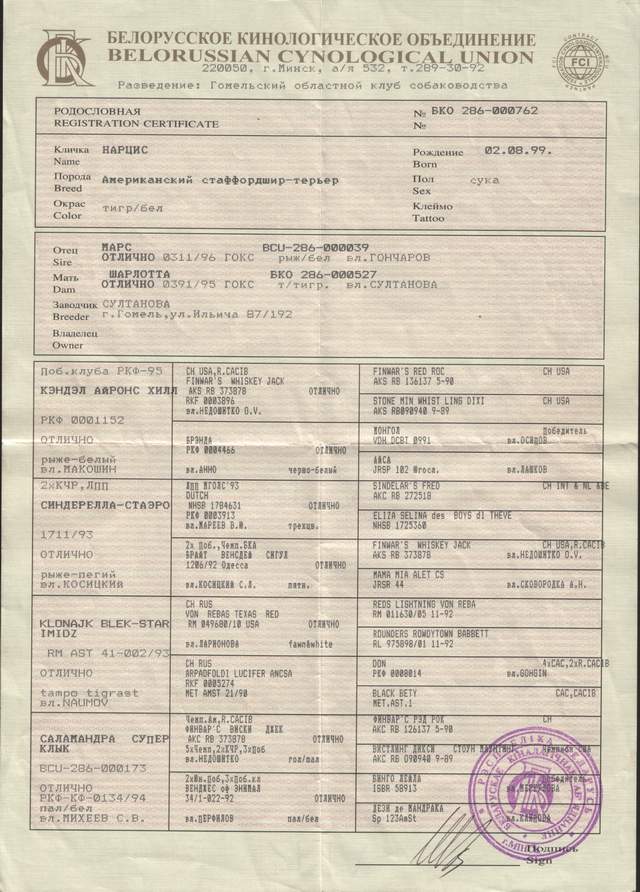 БЕЛОРУССКОЕ КИНОЛОГИЧЕСКОЕ ОБЪЕДИНЕНИЕ
BELORUSSIAN CYNOLOGICAL UNION
220050, г.Минск, а/я 532, т.289-30-92
Разведение: Гомельский областной клуб собаководства
FCI
РОДОСЛОВНАЯ
REGISTRATION CERTIFICATE
№ БКО 286-000762
№
Кличка НАРЦИС
Name
Рождение 02.08.99.
Born
Порода Американский стаффордшир-терьер
Breed
Пол сука
Sex
Окрас тигр/бел
Color
Клеймо
Tattoo
Отец МАРС BCU-286-000039
Sire ОТЛИЧНО 0311/96 ГОКС рыж/бел вл.ГОНЧАРОВ
Мать ШАРЛОТТА БКО 286-000527
Dam ОТЛИЧНО 0391/95 ГОКС т/тигр. вл.СУЛТАНОВА
Заводчик СУЛТАНОВА
Breeder г.Гомель,ул.Ильича 87/192
Владелец
Owner
Поб.клуба РКФ-95
КЭНДЭЛ АЙРОНС ХИЛЛ
РКФ 0001152
ОТЛИЧНО
рыже-белый
вл.МАКОШИН
CH USA,R.CACIB
FINWAR'S WHISKEY JACK
AKS RB 373878 ОТЛИЧНО
RKF 0003896
вл.НЕДОШИТКО O.V.
FINWAR'S RED ROC CH USA
AKS RB 136137 5-90
STONE MIN WHIST LING DIXI CH USA
AKS RB090940 9-89
БРЭНДА
РКФ 0004466 ОТЛИЧНО
вл.АННО черно-белый
МОНГОЛ Победитель
VDH DCBT 0991 вл.ОСИПОВ
АЙСА
JRSP 102 Югосл. вл.ПАШКОВ
2хКЧР,ЛПП
СИНДЕРЕЛЛА-СТАЭРО
1711/93
ОТЛИЧНО
рыже-пегий
вл.КОСИЦКИЙ
ЛПП МГОЛС'93
DUTCH
NHSB 1784631 ОТЛИЧНО
РКФ 0003913
вл.МАРЕЕВ В.Ю. трехцв.
SINDELAR'S FRED CH INT & NL
AKC RB 272518
ELIZA SELINA des BOYS di THEVE
NHSB 1725360
2х Поб.,Чемп.БКА
БРАЙТ ВЕНСДЕЙ СИГУЛ
1206/92 Одесса ОТЛИЧНО
вл.КОСИЦКИЙ С.Л. пятн.
FINWAR'S WHISKEY JACK CH USA,R.CACIB
AKS RB 373878 вл.НЕДОШИТКО O.V.
MAMA MIA ALET CS
JRSR 44 вл.СКОВОРОДКА А.Н.
KLONAJK BLEK-STAR
IMIDZ
RM AST 41-002/93
ОТЛИЧНО
tampo tigrast
вл.NAUMOV
CH RUS
VON REBAS TEXAS RED
RM 049680/10 USA ОТЛИЧНО
вл.ЛАРИОНОВА fawn&white
REDS LIGHTNING VON REBA
RM 011630/05 11-92
ROUNDERS ROWDYTOWN BABBETT
RL 975898/01 11-92
CH RUS
ARPADFOLDI LUCIFER ANCSA
RKF 0005274
MET AMST 21/90 ОТЛИЧНО
DON 4xCAC,2xR.CACIB
РКФ 0008014 вл.GOHGIN
BLACK BETY CAC,CACIB
MET.AST.1
САЛАМАНДРА СУПЕР
КЛЫК
BCU-286-000173
ОТЛИЧНО
РКФ-КФ-0134/94
пал/бел
вл.МИХЕЕВ С.В.
Чемп.Ам,R.CACIB
ФИНВАР'С ВИСКИ ДЖЕК
AKC RB 373878 ОТЛИЧНО
5хЧемп,2хКЧР,3хПоб
вл.НЕДОШИТКО гол/пал
ФИНВАР'С РЭД РОК CH
AKC RB 126137 5-90
ВИСТЛИНГ ДИКСИ СТОУН МАЙНТИНГ Чемпион США
AKC RB 090940 9-90
2хЮн.Поб,3хПоб.кл
ВЕНДЖЕС оф ЭНИМАЛ
34/1-022-92 ОТЛИЧНО
вл.ПЕРФИЛОВ пал/бел
ВИНГО ЛЕЙЛА Победитель
ISBR 58913
ДЕЗИ де МАНДРАКА
Sp 123AmSt вл.КЛИПОВА
РЭСПУБЛІКА БЕЛАРУСЬ
Подпись
Sign